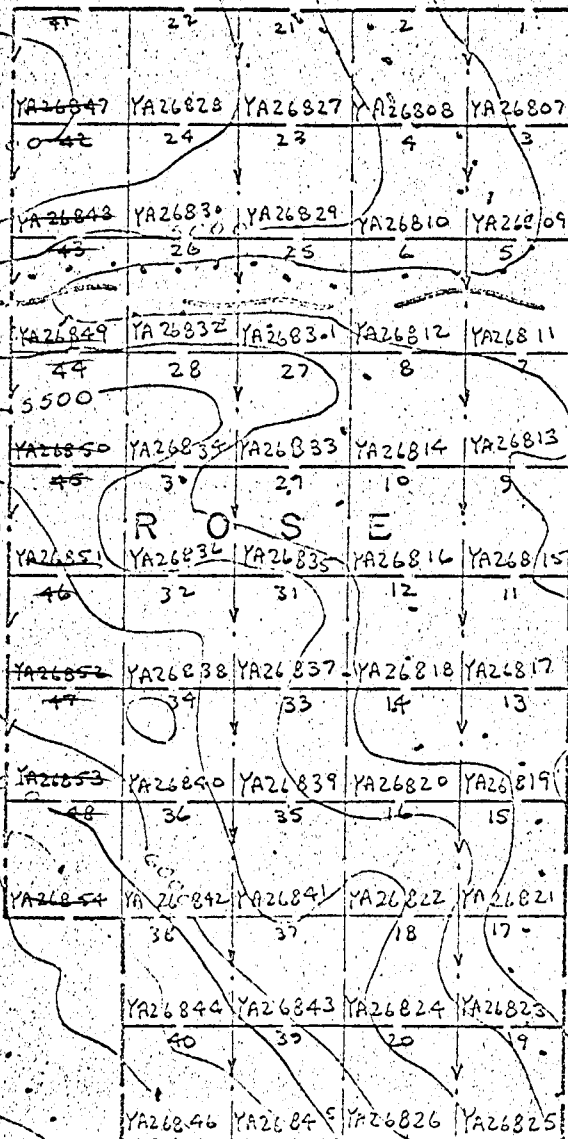 41 22 21 2 1
YA26847 YA26828 YA26827 YA26808 YA26807
42 24 23 4 3
YA26848 YA26830 YA26829 YA26810 YA26809
43 26 25 6 5
YA26849 YA26832 YA26831 YA26812 YA26811
44 28 27 8 7
5500
YA26850 YA26834 YA26833 YA26814 YA26813
45 30 29 10 9
ROSE
YA26851 YA26836 YA26835 YA26816 YA26815
46 32 31 12 11
YA26852 YA26838 YA26837 YA26818 YA26817
47 34 33 14 13
YA26853 YA26840 YA26839 YA26820 YA26819
48 36 35 16 15
YA26854 YA26842 YA26841 YA26822 YA26821
38 37 18 17
YA26844 YA26843 YA26824 YA26823
40 39 20 19
YA26846 YA26845 YA26826 YA26825